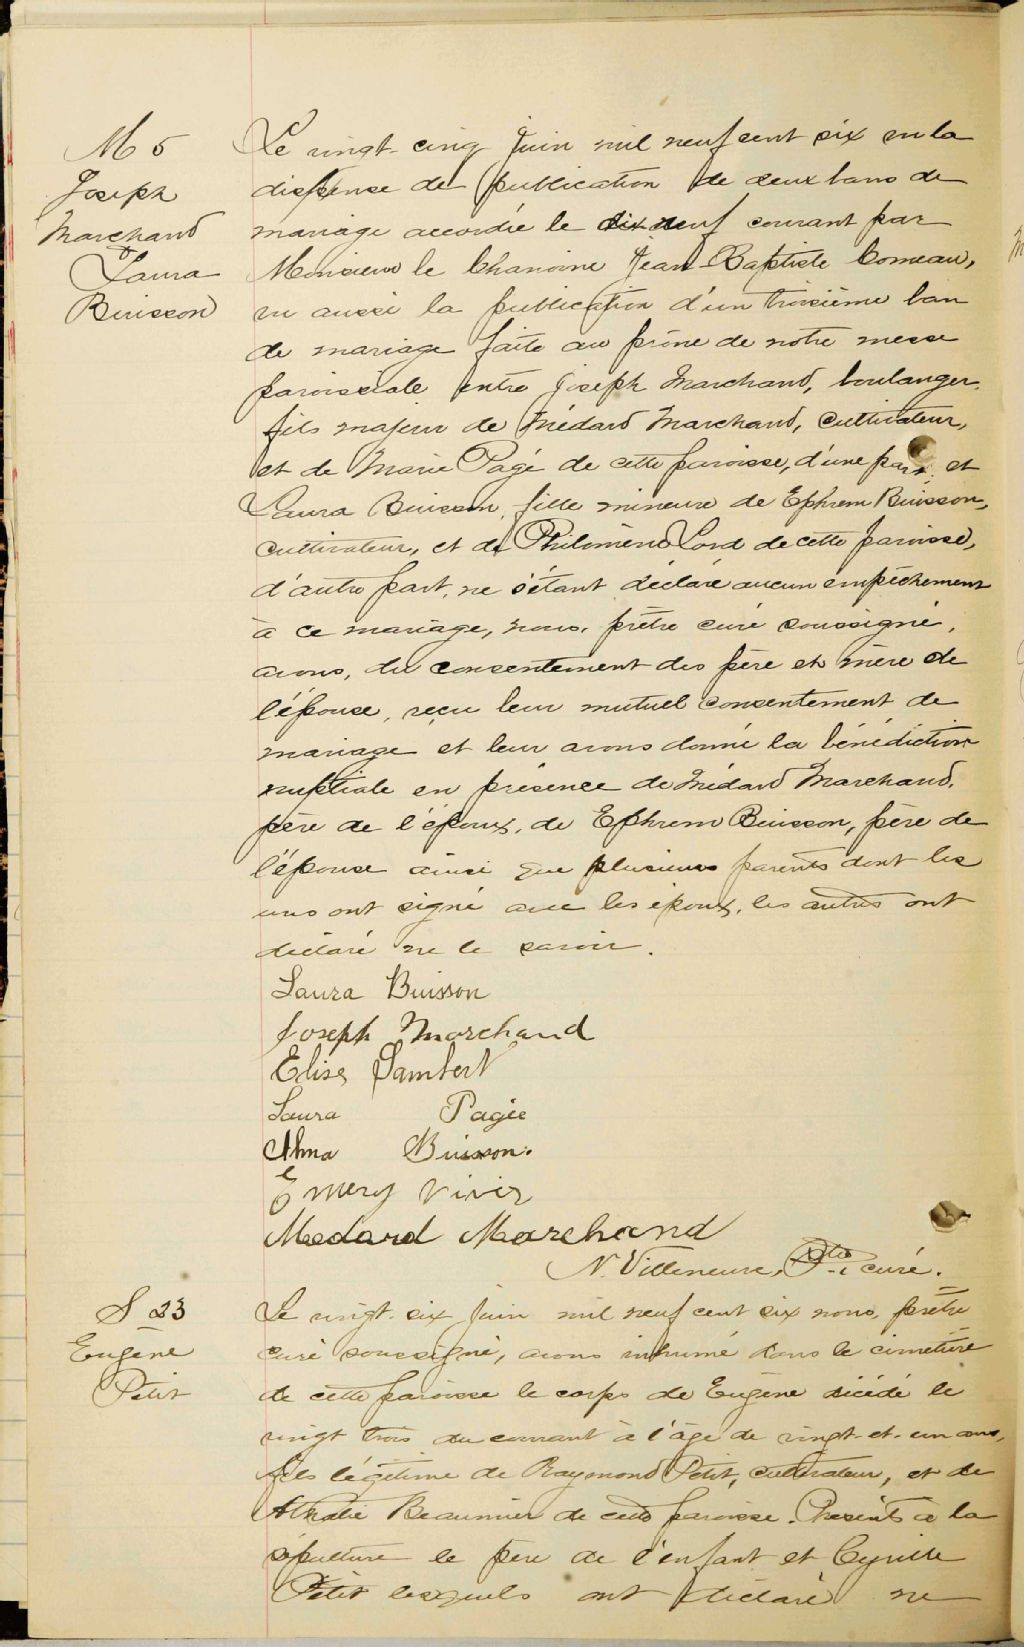 M 5
Joseph
Marchand
&
Laura
Buisson
Le vingt-cinq Juin mil neuf cent six vu la
dispense de publication de deux bans de
mariage accordée le dix neuf courant par
Monsieur le Chanoine Jean-Baptiste Comeau,
vu aussi la publication d'un troisième ban
de mariage faite au prône de notre messe
paroissiale entre Joseph Marchand, boulanger,
fils majeur de Médard Marchand, cultivateur,
et de Marie Pagé de cette paroisse, d'une part, et
Laura Buisson, fille mineure de Ephrem Buisson,
cultivateur, et de Philomène Lord de cette paroisse,
d'autre part, ne s'étant déclaré aucun empêchement
à ce mariage, nous, prêtre curé soussigné,
avons, du consentement des père et mère de
l'épouse, reçu leur mutuel consentement de
mariage et leur avons donné la bénédiction
nuptiale en présence de Médard Marchand,
père de l'époux, de Ephrem Buisson, père de
l'épouse ainsi que plusieurs parents dont les
uns ont signé avec les époux, les autres ont
déclaré ne le savoir.
Laura Buisson
Joseph Marchand
Elise Lambert
Laura Pagée
Alma Buisson.
Emery Vivier
Medard Marchand
N. Villeneuve, Ptre curé.
S 23
Eugène
Petit
Le vingt-six Juin mil neuf cent six nous, prêtre
curé soussigné, avons inhumé dans le cimetière
de cette paroisse le corps de Eugène décédé le
vingt trois du courant à l'âge de vingt-et-un ans,
fils légitime de Raymond Petit, cultivateur, et de
Athalie Beaumier de cette paroisse. Présents à la
sépulture le père de l'enfant et Cyrille
Petit lesquels ont déclaré ne